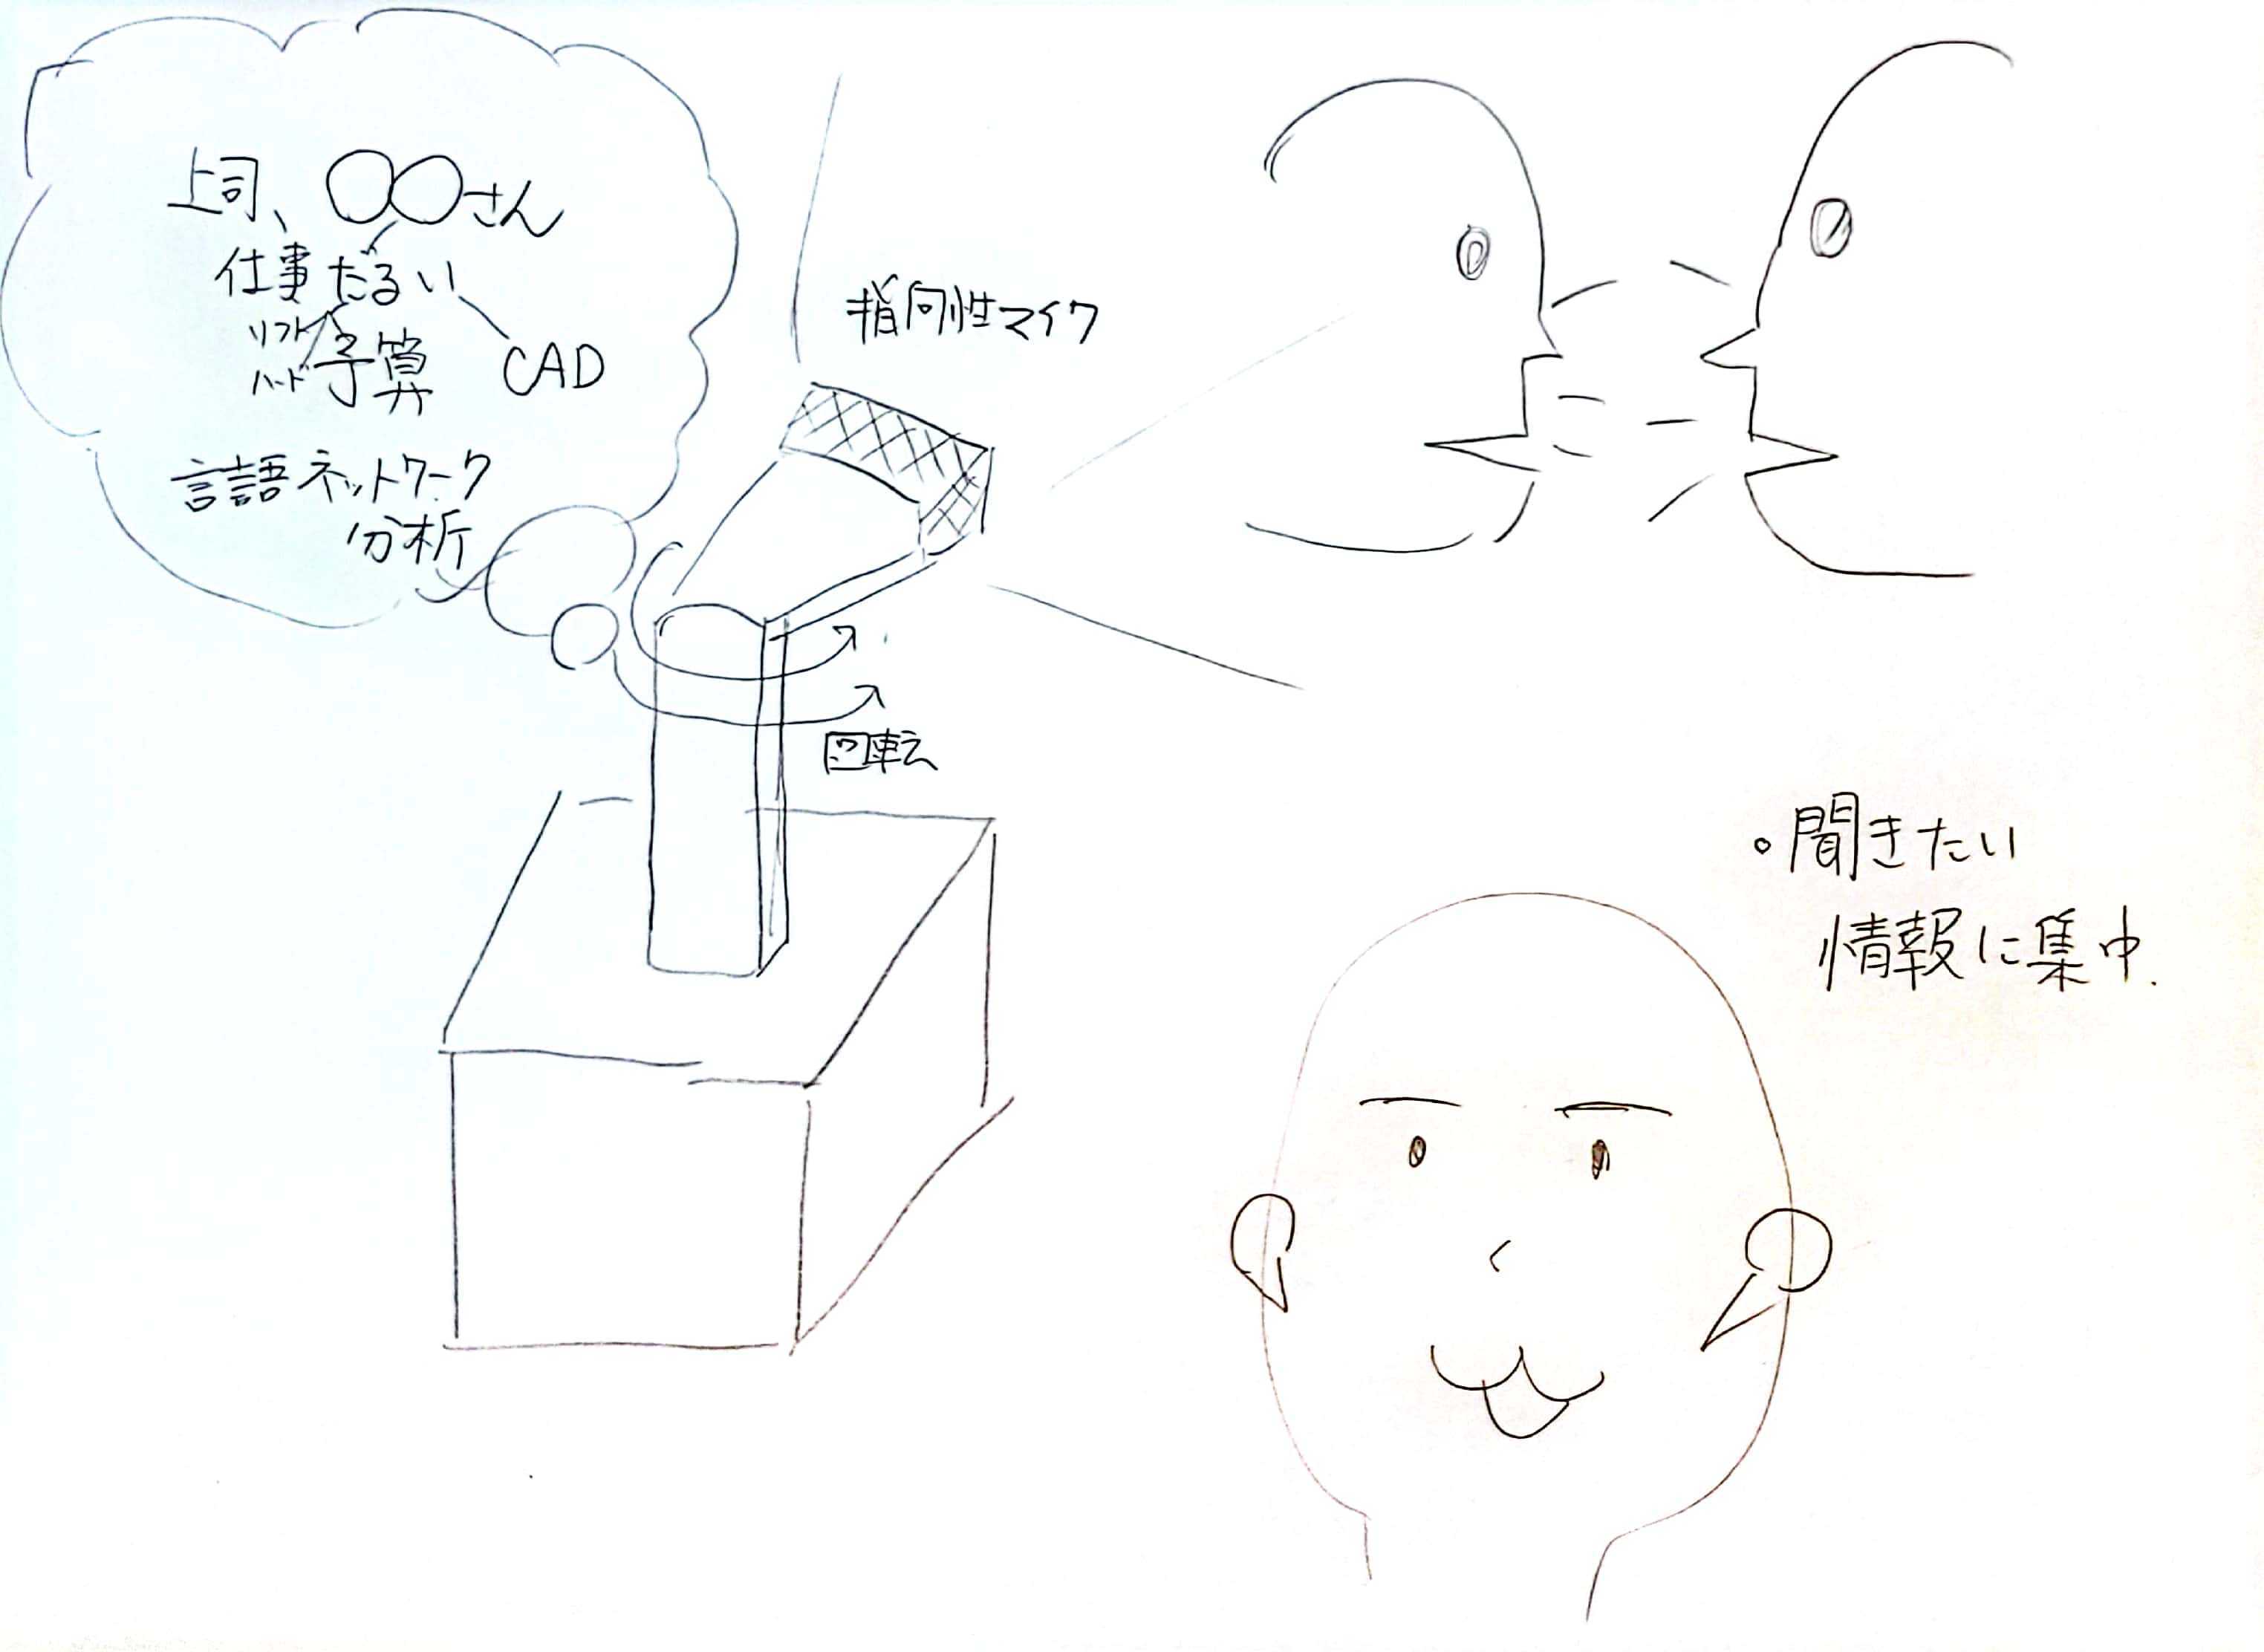 上司、〇〇さん
仕事だるい
ソフト
ハード
予算
CAD
言語ネットワーク
分析
指向性マイク
回転
・聞きたい
情報に集中.